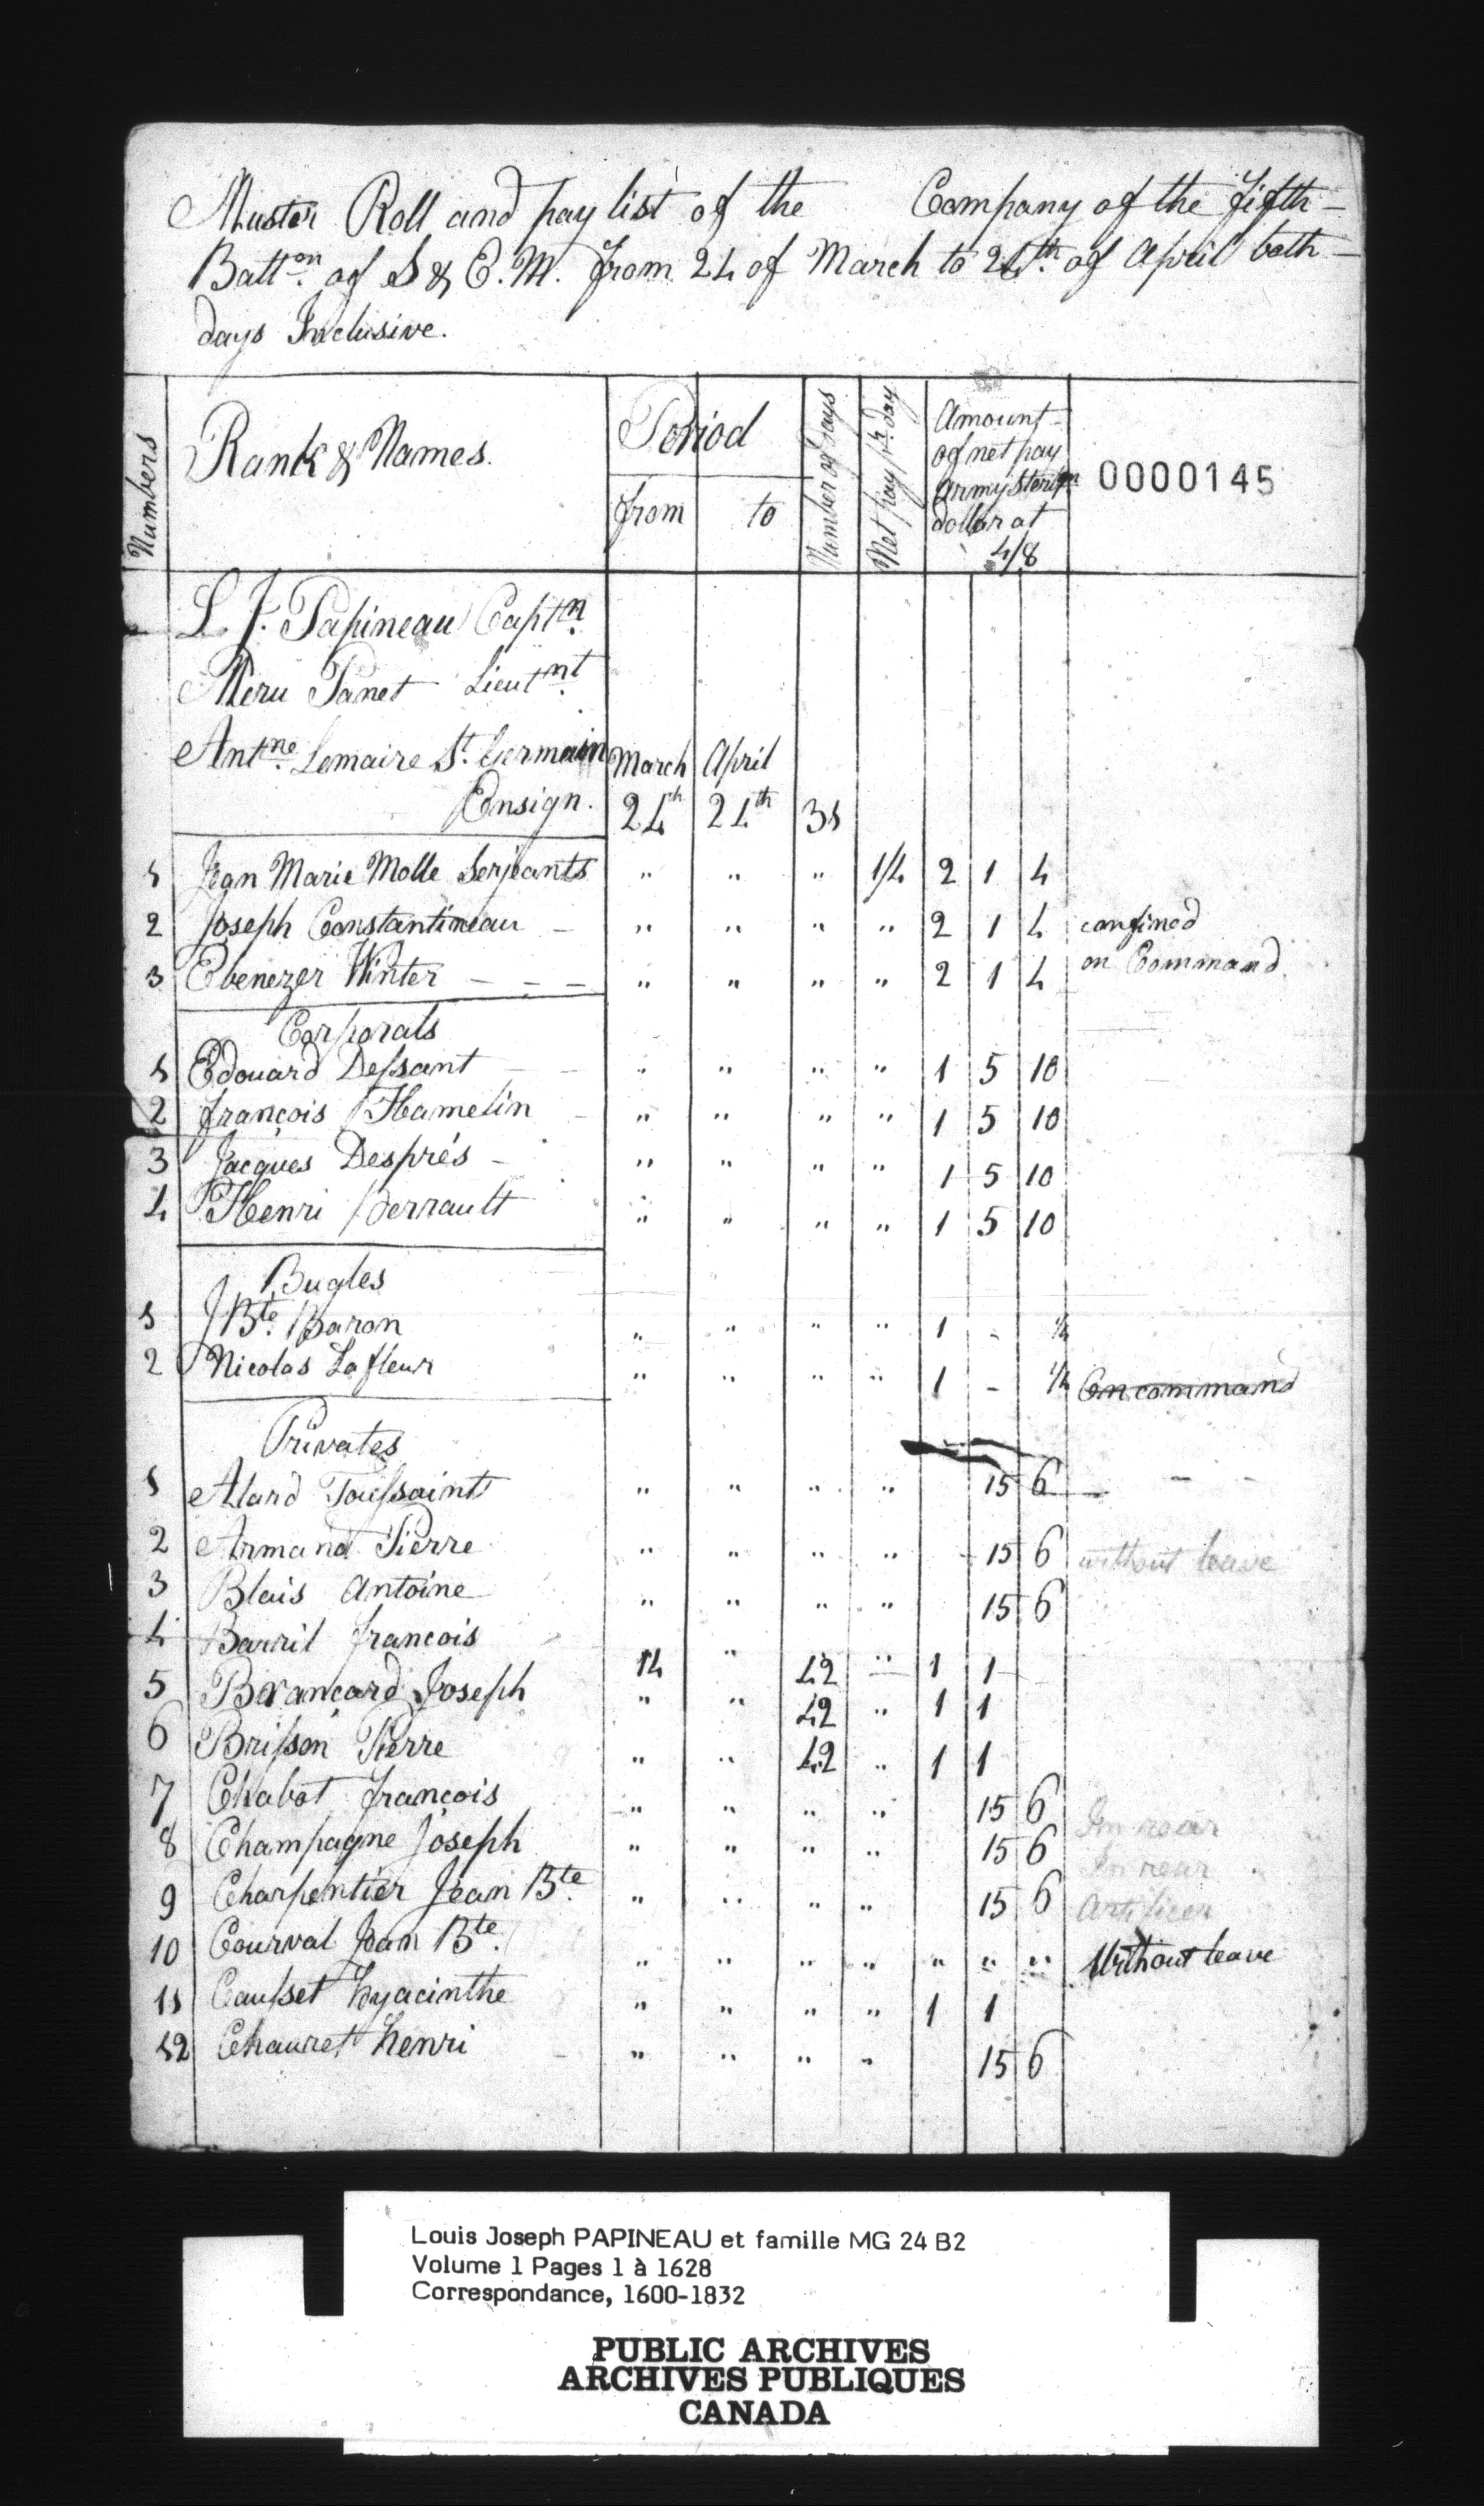 Muster Roll and pay list of the Company of the fifth –
Batt.on of S & E. M. from 24 of March to 24th of April both –
days Inclusive.
Numbers Rank & Names. Period from to Number of days Net pay pr day Amount of net pay army Sterlin dollar at 4/8
0000145
L. J. Papineau Capt.n
Meru Panet Lieut.nt
Ant.ne Lemaire St. Germain March April
Ensign. 24th 24th 31
1 Jean Marie Molle Serjeants " " " 1/4 2 1 4
2 Joseph Constantineau – " " " " 2 1 4 confined
3 Ebenezer Winter – – – " " " " 2 1 4 on Command
Corporals
1 Edouard Dessant " " " " 1 5 10
2 françois Hamelin " " " " 1 5 10
3 Jacques Després – " " " " 1 5 10
4 Henri Perrault " " " " 1 5 10
Bugles
1 J Bte. Baron " " " " 1 - 1/4
2 Nicolas Lafleur " " " " 1 - 1/4 On command
Privates
1 Alard Toussaint " " " " 15 6 – – –
2 Armand Pierre " " " " 15 6 without leave
3 Blais Antoine " " " " 15 6
4 Barril francois 14 " 42 " 1 1
5 Brançard Joseph " " 42 " 1 1
6 Brisson Pierre " " 42 " 1 1
7 Chabot françois " " " " 15 6 In rear
8 Champagne Joseph " " " " 15 6 In rear
9 Charpentier Jean Bte. " " " " 15 6 Artificer
10 Courval Jean Bte. " " " " " " " Without leave
11 Causset hyacinthe " " " " 1 1
12 Chauret henri " " " " 15 6
Louis Joseph PAPINEAU et famille MG 24 B2
Volume 1 Pages 1 à 1628
Correspondance, 1600-1832
PUBLIC ARCHIVES
ARCHIVES PUBLIQUES
CANADA